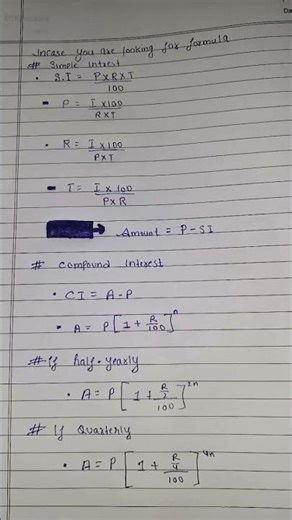 Incase you are looking for formula
# Simple intrest
• S.I = P×R×T/100
- P = I×100/R×T
• R = I×100/P×T
- T = I × 100/P×R
Amount = P-SI
# Compound Interest
• CI = A-P
• A = P[1+R/100]^n
# If half-yearly
• A = P[1+R/2/100]^2n
# If Quarterly
• A = P[1+R/4/100]^4n